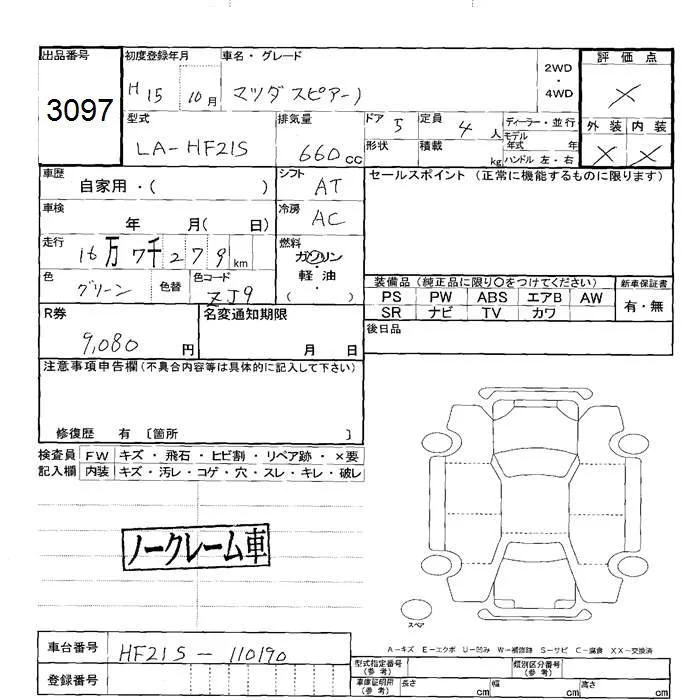 出品番号
3097
初度登録年月
H 15 10月
車名・グレード
マツダ スピアーノ
2WD
・
4WD
評価点
×
型式
LA-HF21S
排気量
660cc
ドア 5
定員 4人
ディーラー・並行
モデル年式 年
形状
積載 kg
ハンドル 左・右
外装 内装
× ×
車歴
自家用・( )
シフト
AT
セールスポイント (正常に機能するものに限ります)
車検
年 月( 日)
冷房
AC
走行
16万7千279km
燃料
ガソリン
・
軽・油
( )
色
グリーン
色替
色コード
ZJ9
装備品 (純正品に限り○をつけてください)
新車保証書
PS PW ABS エアB AW
有・無
SR ナビ TV カワ
R券
9,080円
名変通知期限
月 日
後日品
注意事項申告欄 (不具合内容等は具体的に記入して下さい)
修復歴 有 〔箇所 〕
検査員 FW キズ・飛石・ヒビ割・リペア跡・×要
記入欄 内装 キズ・汚レ・コゲ・穴・スレ・キレ・破レ
ノークレーム車
スペア
A-キズ E-エクボ U-凹み W-補修跡 S-サビ C-腐食 XX-交換済
車台番号
HF21S-110190
登録番号
型式指定番号
(参考)
類別区分番号
(参考)
車庫証明用
(参考)
長さ cm 幅 cm 高さ cm